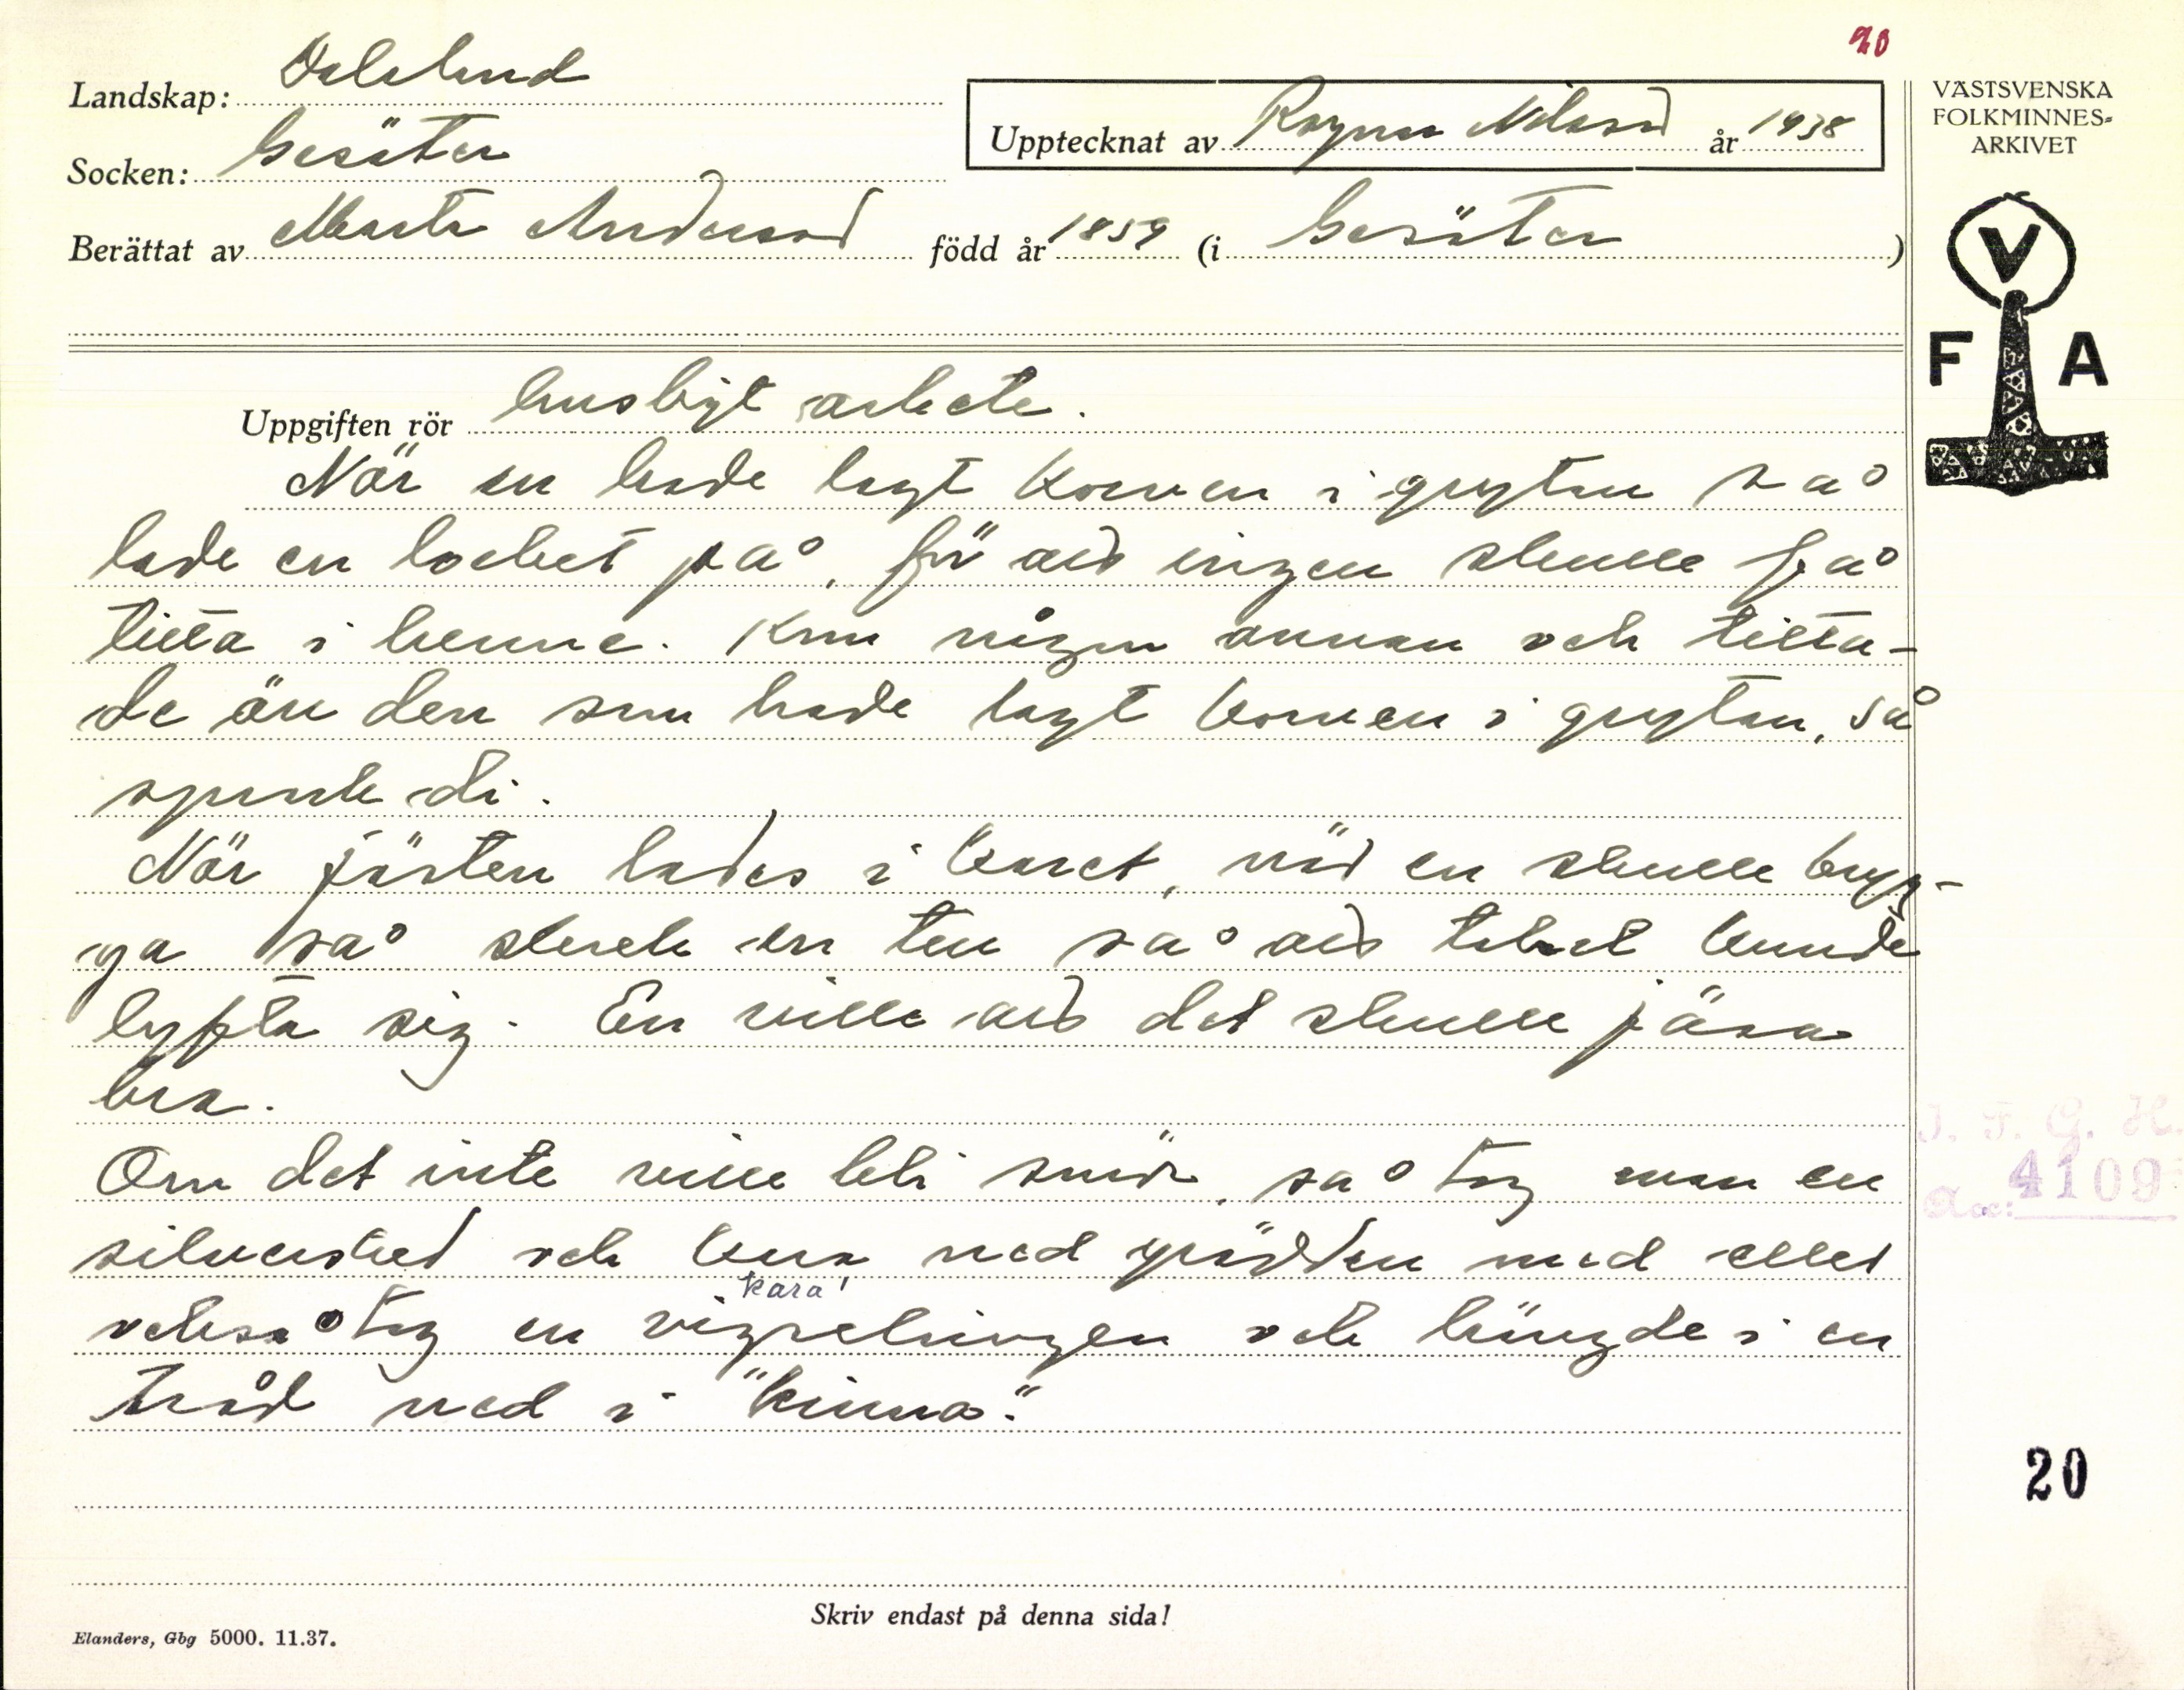 20
Landskap: Dalsland
Socken: Gesäter
Upptecknat av Ragnar Nilsson år 1938
Berättat av Marta Andersson född år 1859 (i Gesäter)
VÄSTSVENSKA
FOLKMINNES-
ARKIVET
V
F A
Uppgiften rör husligt arbete.
När en hade lagt korven i grytan så
lade en locket på, för att ingen skulle få
titta i henne. Kom någon annan och titta-
de än den som hade lagt korven i grytan, så
sprack di.
När jästen lades i karet, när en skulle bryg-
ga så skrek en te så att taket kunde
lyfta sig. En ville att det skulle jäsa
bra.
Om det inte ville bli smör, så tog man en
silversked och kara ned grädden med eller
kara!
också tog en vigselringen och hängde i en
tråd ned i "kinna".
I. F. G. H.
Acc: 4109
20
Skriv endast på denna sida!
Elanders, Gbg 5000. 11.37.